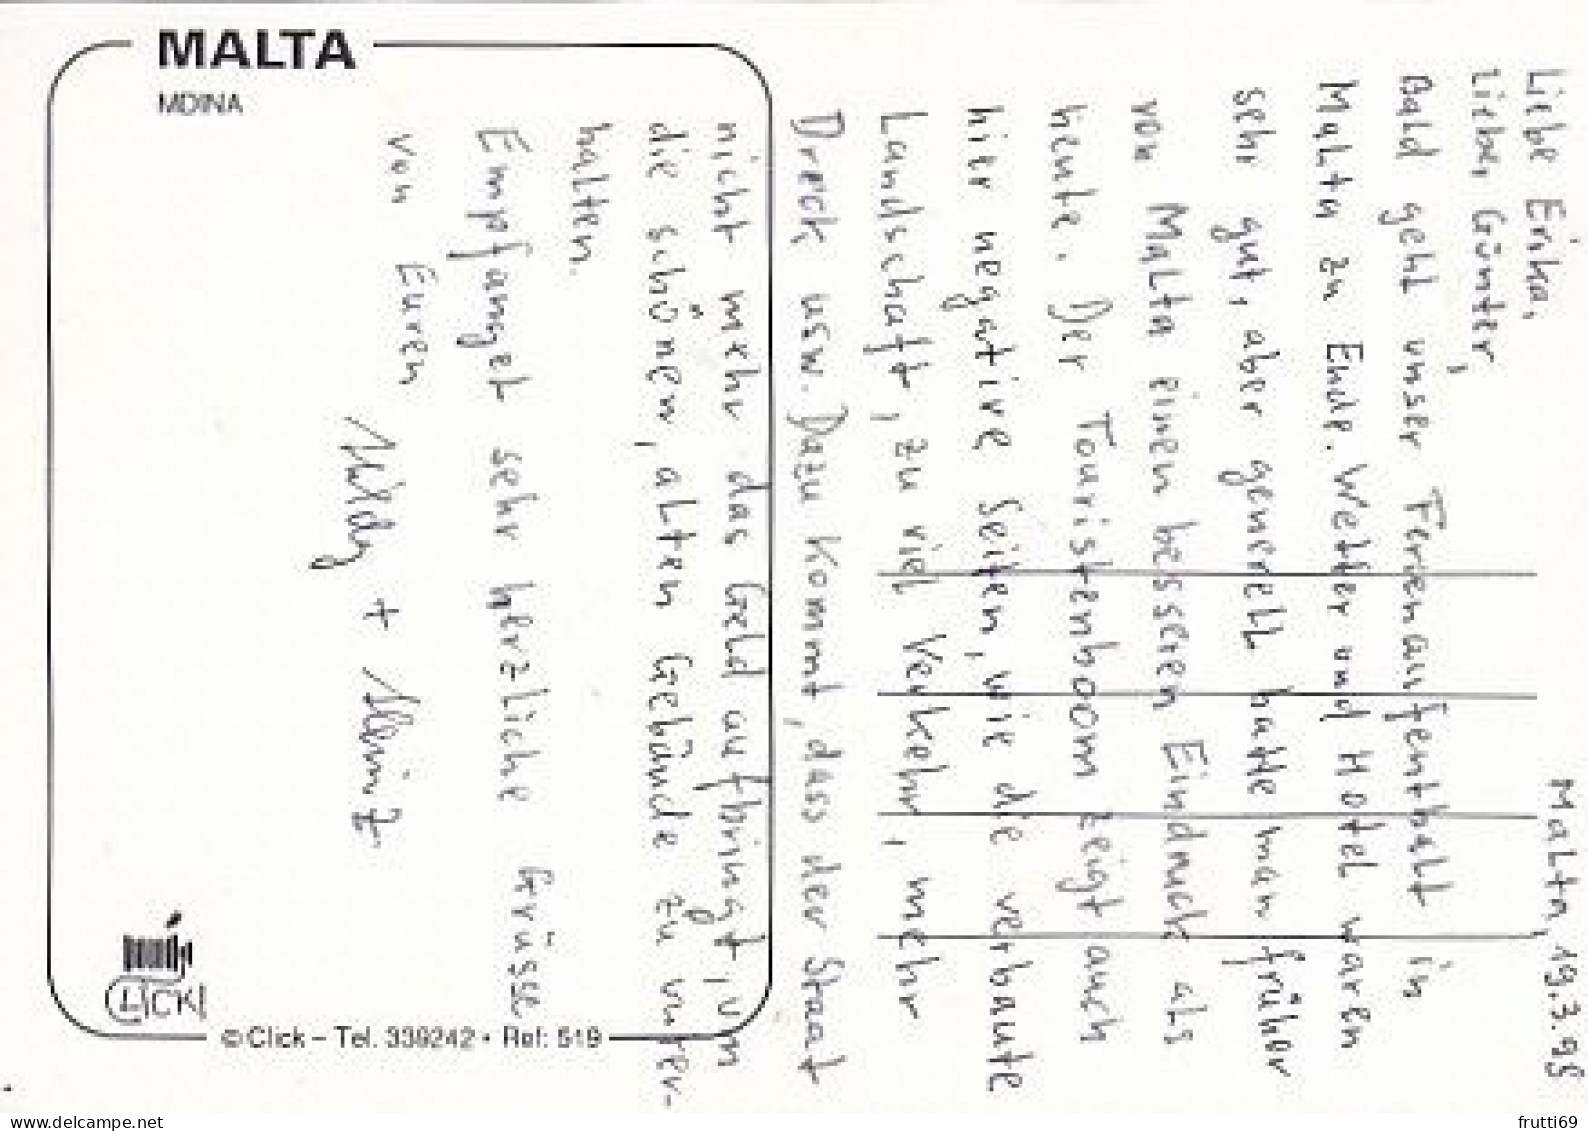 MALTA
MDINA
Malta, 19.3.98
Liebe Erika,
Lieber Günter,
Bald geht unser Ferienaufenthalt in
Malta zu Ende. Wetter und Hotel waren
sehr gut, aber generell hatte man früher
von Malta einen besseren Eindruck als
heute. Der Touristenboom zeigt auch
hier negative Seiten, wie die verbaute
Landschaft, zu viel Verkehr, mehr
Dreck usw. Dazu kommt, dass der Staat
nicht mehr das Geld aufbringt, um
die schönen, alten Gebäude zu unter-
halten.
Empfanget sehr herzliche Grüsse
von Euren
+ Heinz
CLICK
© Click – Tel. 339242 • Ref: 519
frutti69